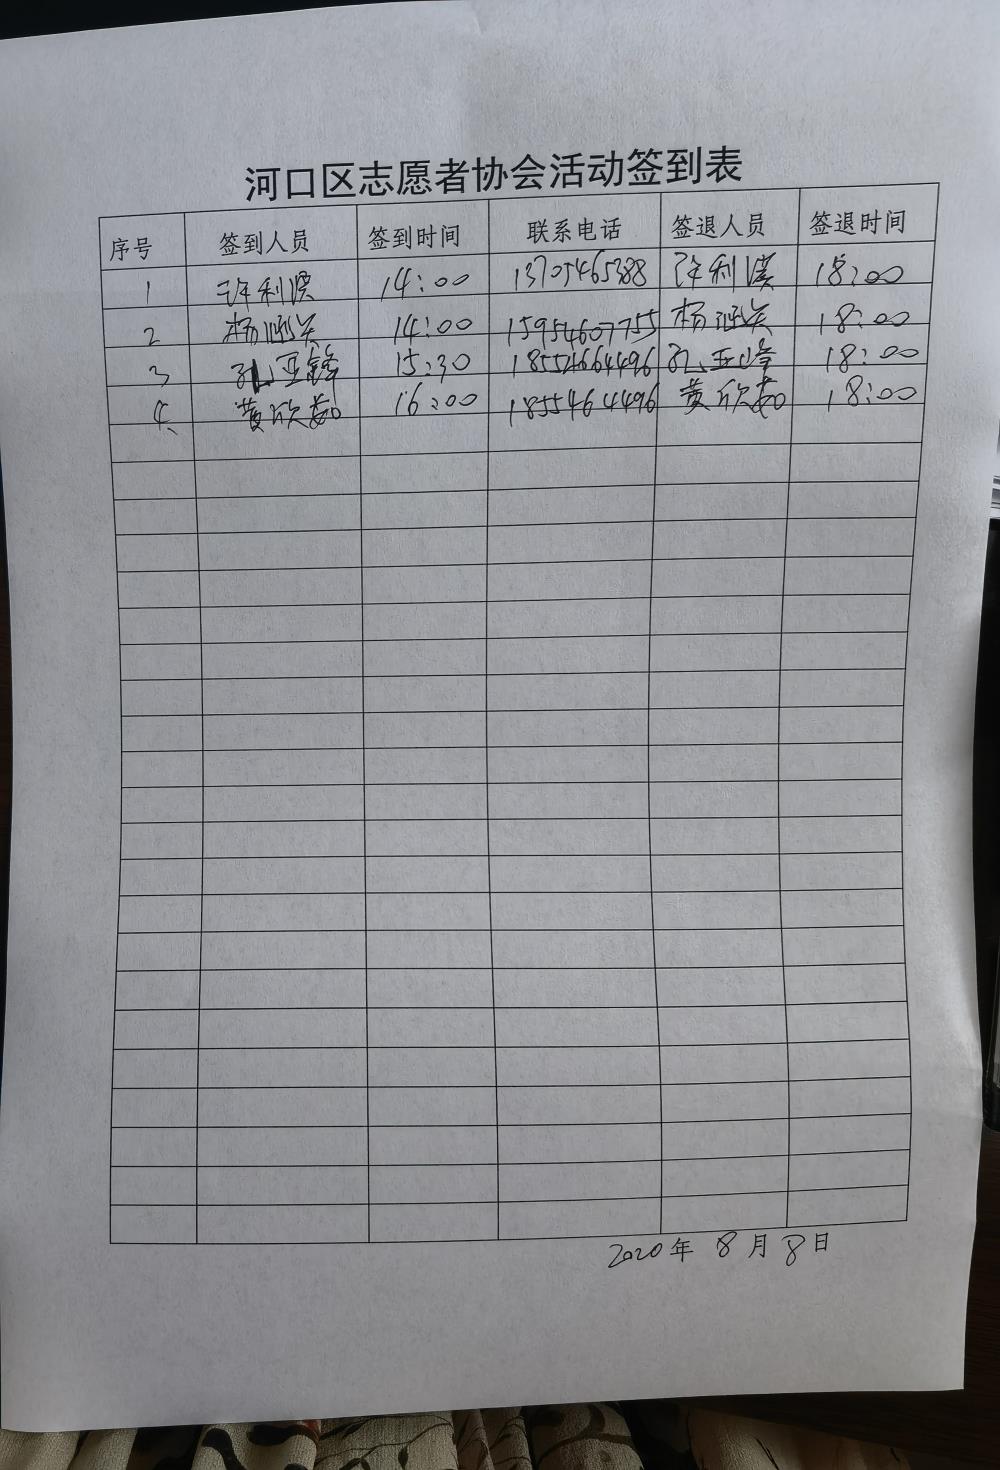 河口区志愿者协会活动签到表
序号 签到人员 签到时间 联系电话 签退人员 签退时间
1 许利滨 14:00 13705465388 许利滨 18:00
2 杨涵关 14:00 15954607755 杨涵关 18:00
3 孔亚锋 15:30 18554664496 孔亚峰 18:00
4、 黄欣茹 16:00 1855464496 黄欣茹 18:00
2020年 8月 8日